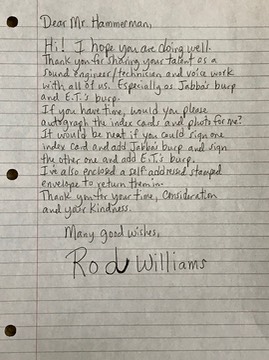 Dear Mr. Hammerman,
Hi! I hope you are doing well.
Thank you for sharing your talent as a
sound engineer/technician and voice work
with all of us. Especially as Jabba's burp
and E.T.'s burp.
If you have time, would you please
autograph the index cards and photo for me?
It would be neat if you could sign one
index card and add Jabba's burp and sign
the other one and add E.T.'s burp.
I've also enclosed a self addressed stamped
envelope to return them in.
Thank you for your time, Consideration
and your Kindness.
Many good wishes,
Rod Williams